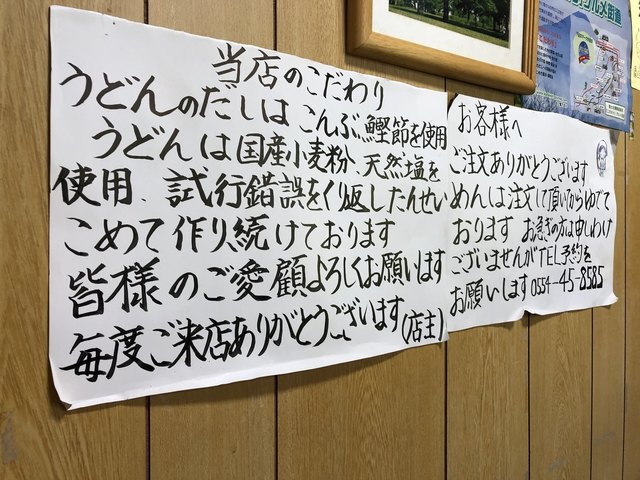 当店のこだわり
うどんのだしは こんぶ、鰹節を使用
うどんは国産小麦粉、天然塩を
使用、試行錯誤をくり返したんせい
こめて作り続けております
皆様のご愛顧よろしくお願います
毎度ご来店ありがとうございます(店主)
お客様へ
ご注文ありがとうございます
めんは注文して頂いてからゆでて
おります お急ぎの方は申しわけ
ございませんがTEL予約を
お願いします 0554-45-8585
グルメ街道